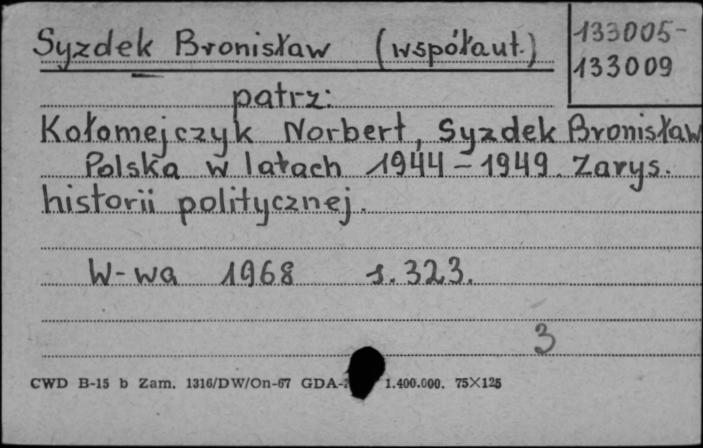 Syzdek Bronisław (współaut.)
133005-
133009
patrz:
Kołomejczyk Norbert, Syzdek Bronisław
Polska w latach 1944-1949. Zarys.
historii politycznej.
W-wa 1968 s. 323.
3
CWD B-15 b Zam. 1316/DW/On-67 GDA- 1.400.000. 75×125